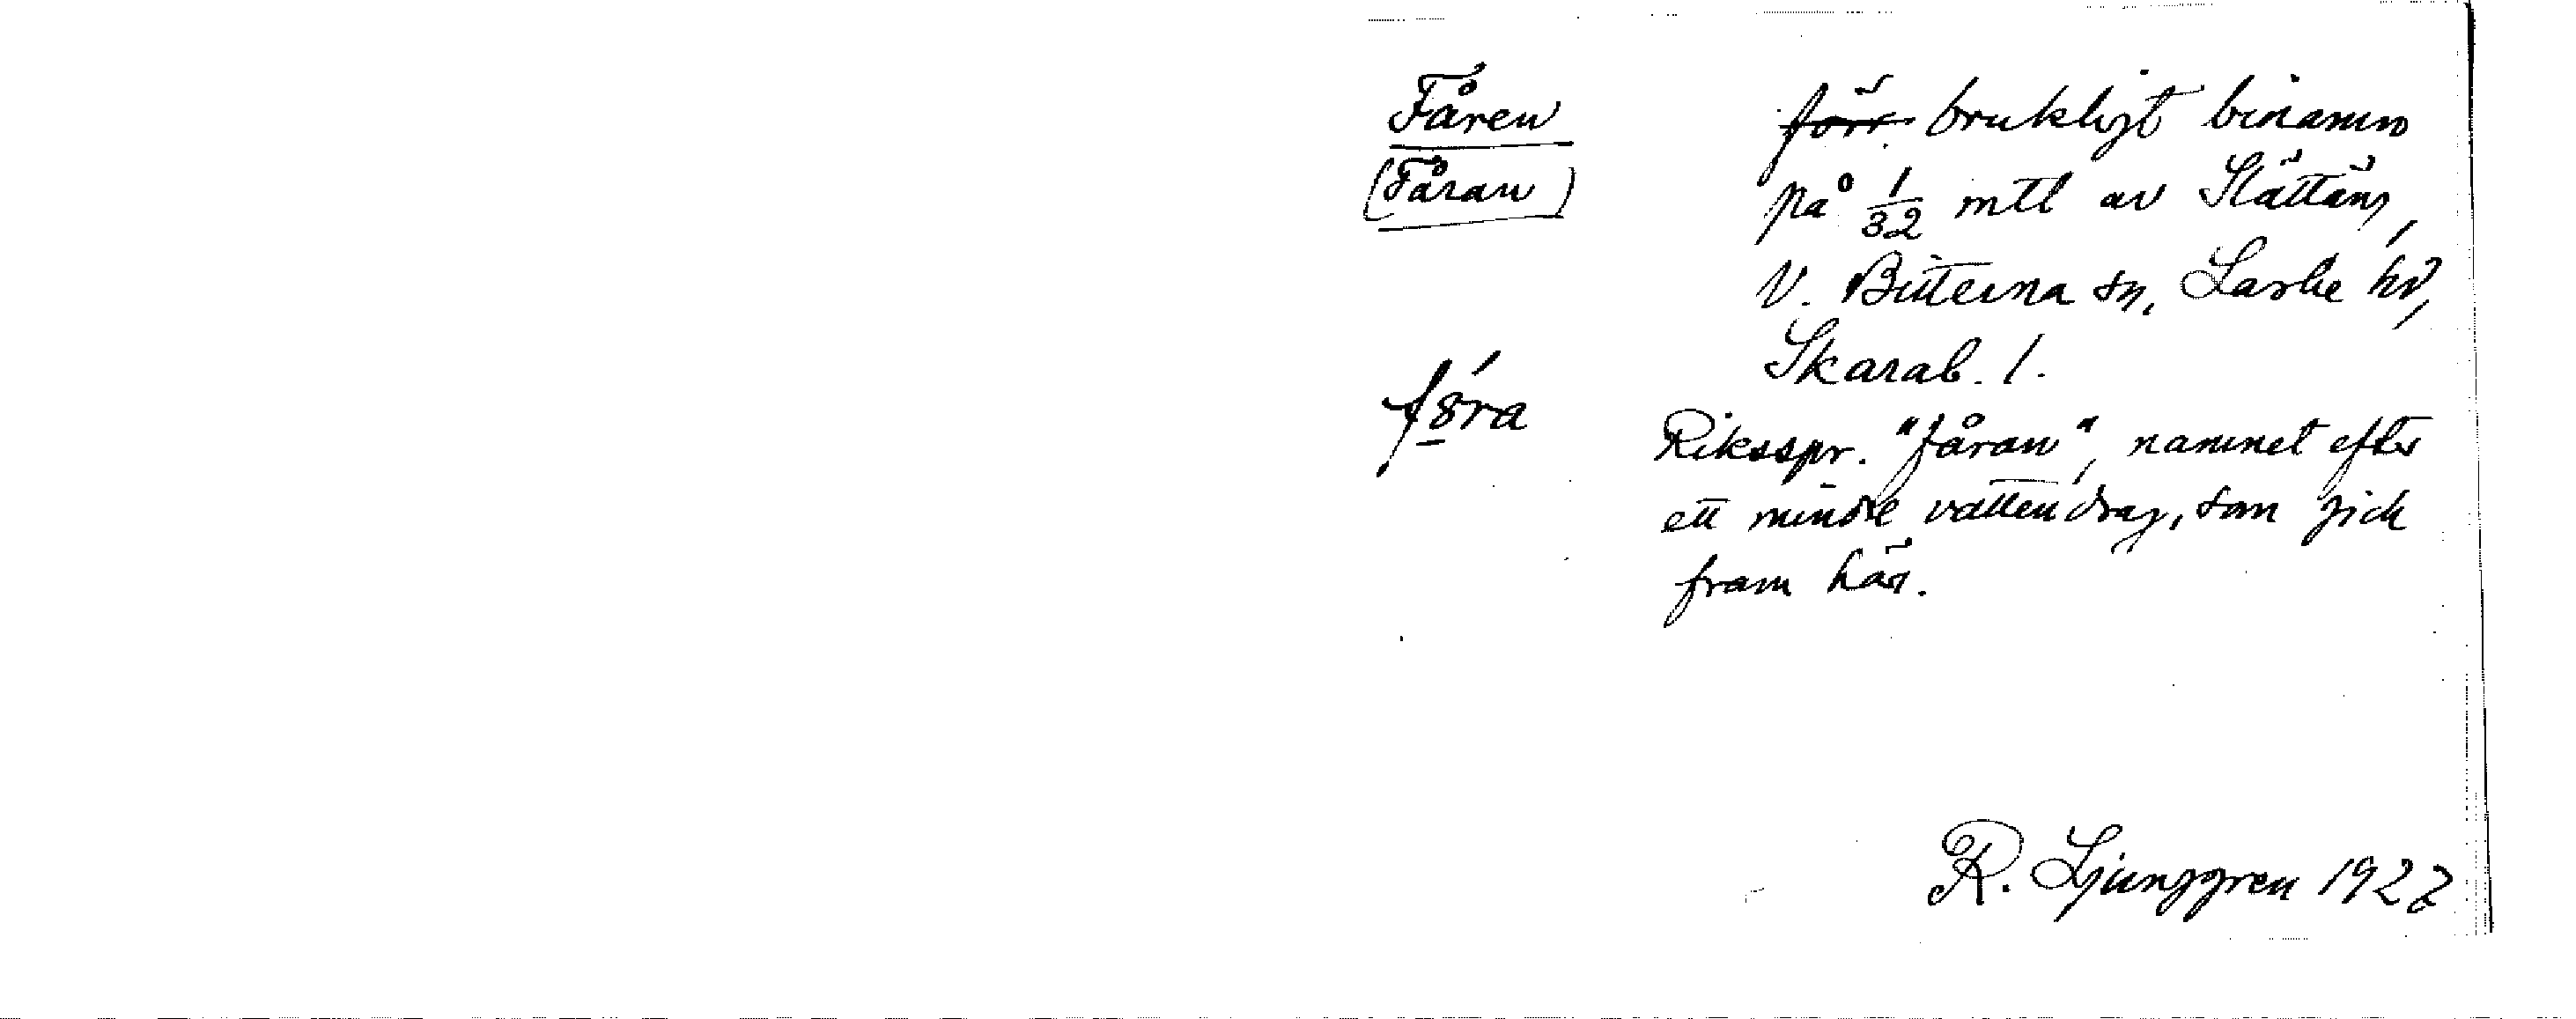 Fåren
(Fåran)
f8́ra
förr brukligt binamn
på 1/32 mtl av Slättäng,
V. Bitterna sn, Laske hd,
Skarab. l.
Riksspr. "fåran", namnet efter
ett mindre vattendrag, som gick
fram här.
R. Ljunggren 1927